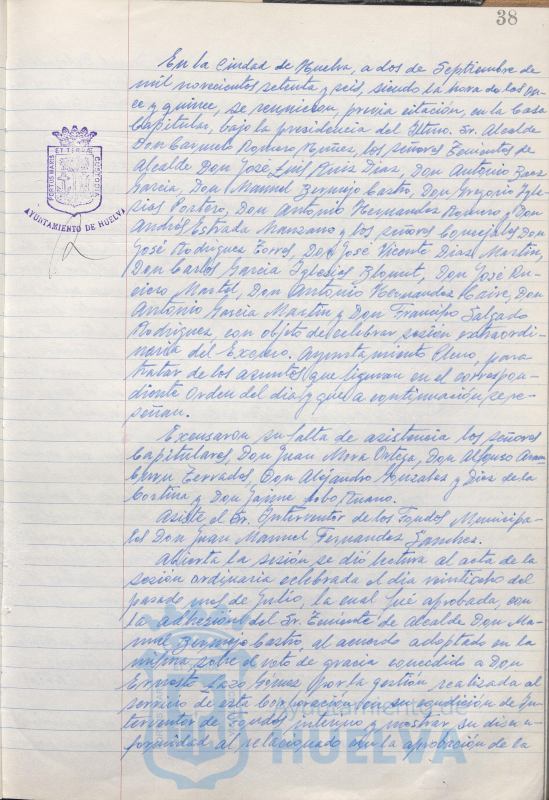 38
En la Ciudad de Huelva, a dos de Septiembre de
mil novecientos setenta y seis, siendo la hora de las on-
ce y quince, se reunieron, previa citación, en la Casa
Capitular, bajo la presidencia del Iltmo. Sr. Alcalde
Don Carmelo Romero Núñez, los señores Tenientes de
Alcalde Don José Luis Ruiz Diaz, Don Antonio Baez
Garcia, Don Manuel Bermejo Castro, Don Gregorio Igle-
sias Portero, Don Antonio Hernandez Romero y Don
Andrés Estrada Manzano y los señores Concejales Don
José Rodriguez Torres, Don José Vicente Diaz Martin,
Don Carlos Garcia Iglesias Don José
Martel, Don Antonio Hernandez Don
Antonio Garcia Martin y Don Francisco Salgado
Rodriguez, con objeto de celebrar sesión extraordi-
naria del Excmo. Ayuntamiento Pleno, para
tratar de los asuntos que figuran en el correspon-
diente Orden del dia y que a continuación se re-
señan.
Excusaron su falta de asistencia los señores
Capitulares, Don Juan Mora Ortiga, Don Alfonso Aram-
buru Terrades, Don Alejandro Gonzalez y Diaz de la
Cortina y Don Jaime Ruano.
Asiste el Sr. Interventor de los Fondos Municipa-
les Don Juan Manuel Fernandez Sanchez.
Abierta la sesión se dió lectura al acta de la
sesión ordinaria celebrada el dia veintiocho del
pasado mes de Julio, la cual fué aprobada, con
la adhesión del Sr. Teniente de Alcalde Don Ma-
nuel Bermejo Castro, al acuerdo adoptado en la
misma, sobre el voto de gracia concedido a Don
Ernesto Lazo Gómez por la gestión realizada al
servicio de esta Corporación en su condición de In-
terventor de Fondos interino y mostrar su discon-
formidad al relacionado con la aprobación de la
PORTUS MARIS ET TERRAE CUSTODIA
AYUNTAMIENTO DE HUELVA
Ayuntamiento de
HUELVA